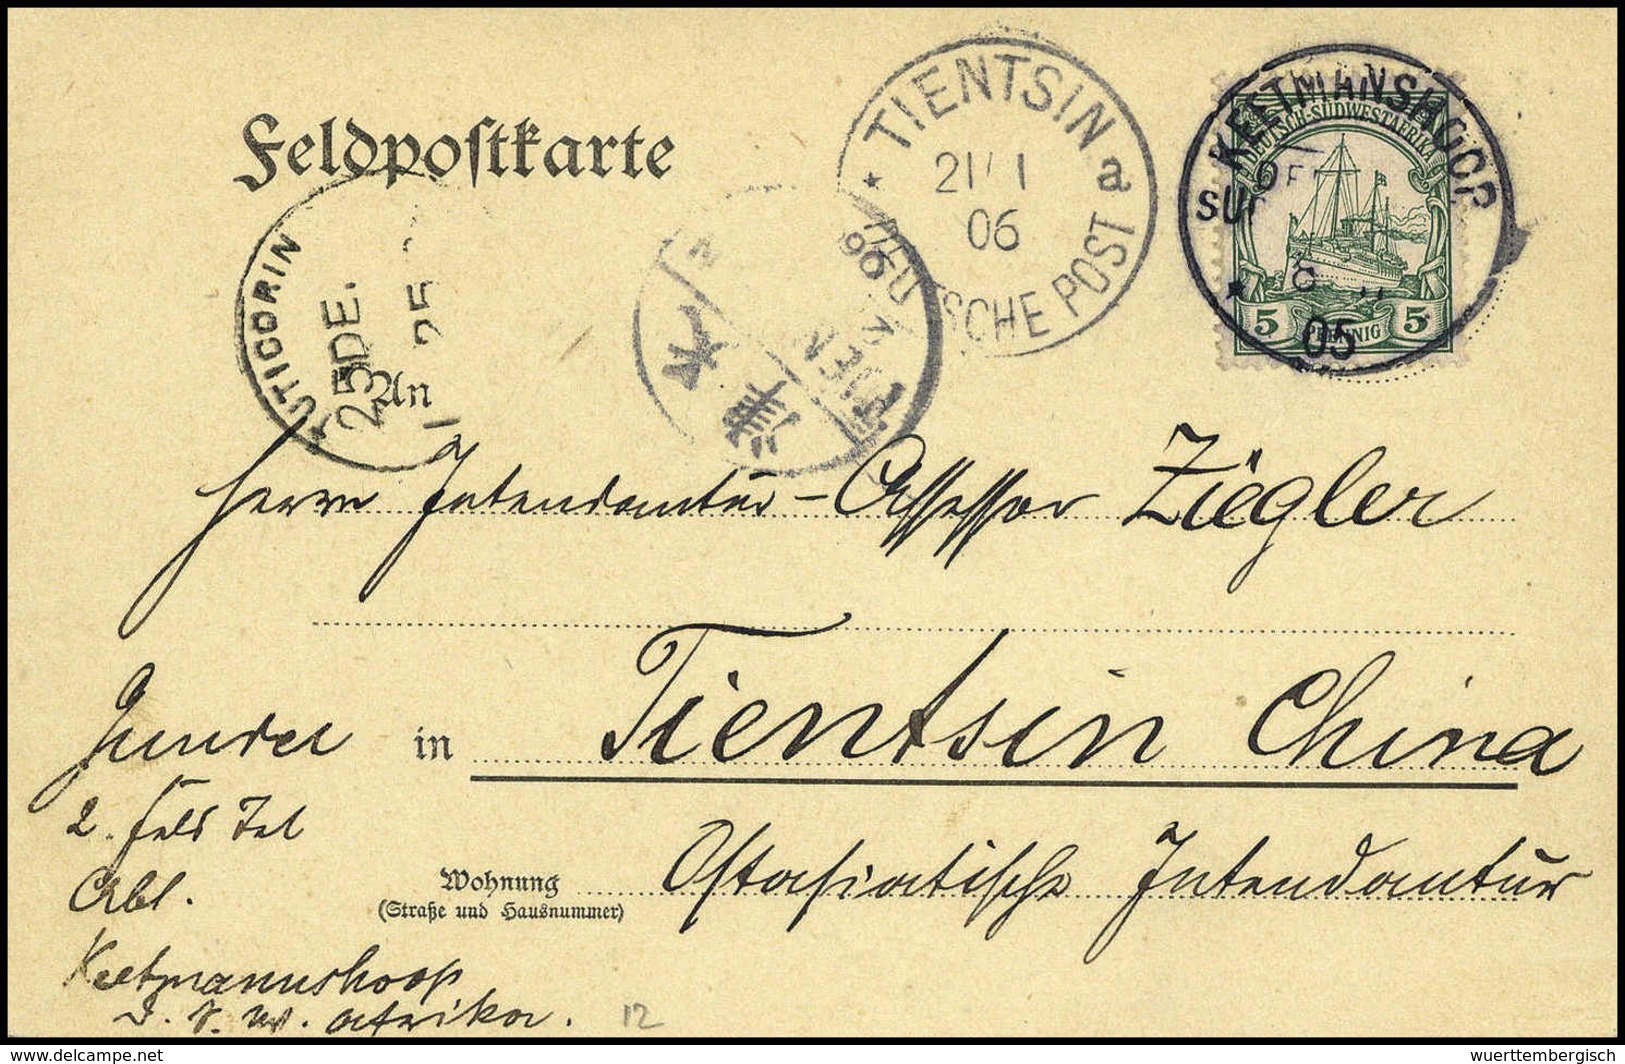 Feldpostkarte
TIENTSIN a
21/1
06
DEUTSCHE POST
KEETMANSHOOP
DEUTSCH-SÜDWESTAFRIKA
05
5 PFENNIG 5
UTICORIN
25DE.
25
An
Herrn Intendantur-Assessor Ziegler
in Tientsin China
2. Feld Tel
Abt.
Wohnung Ostasiatische Intendantur
(Straße und Hausnummer)
Keetmannshoop
D. S. W. Afrika.
12
delcampe.net
wuerttembergisch